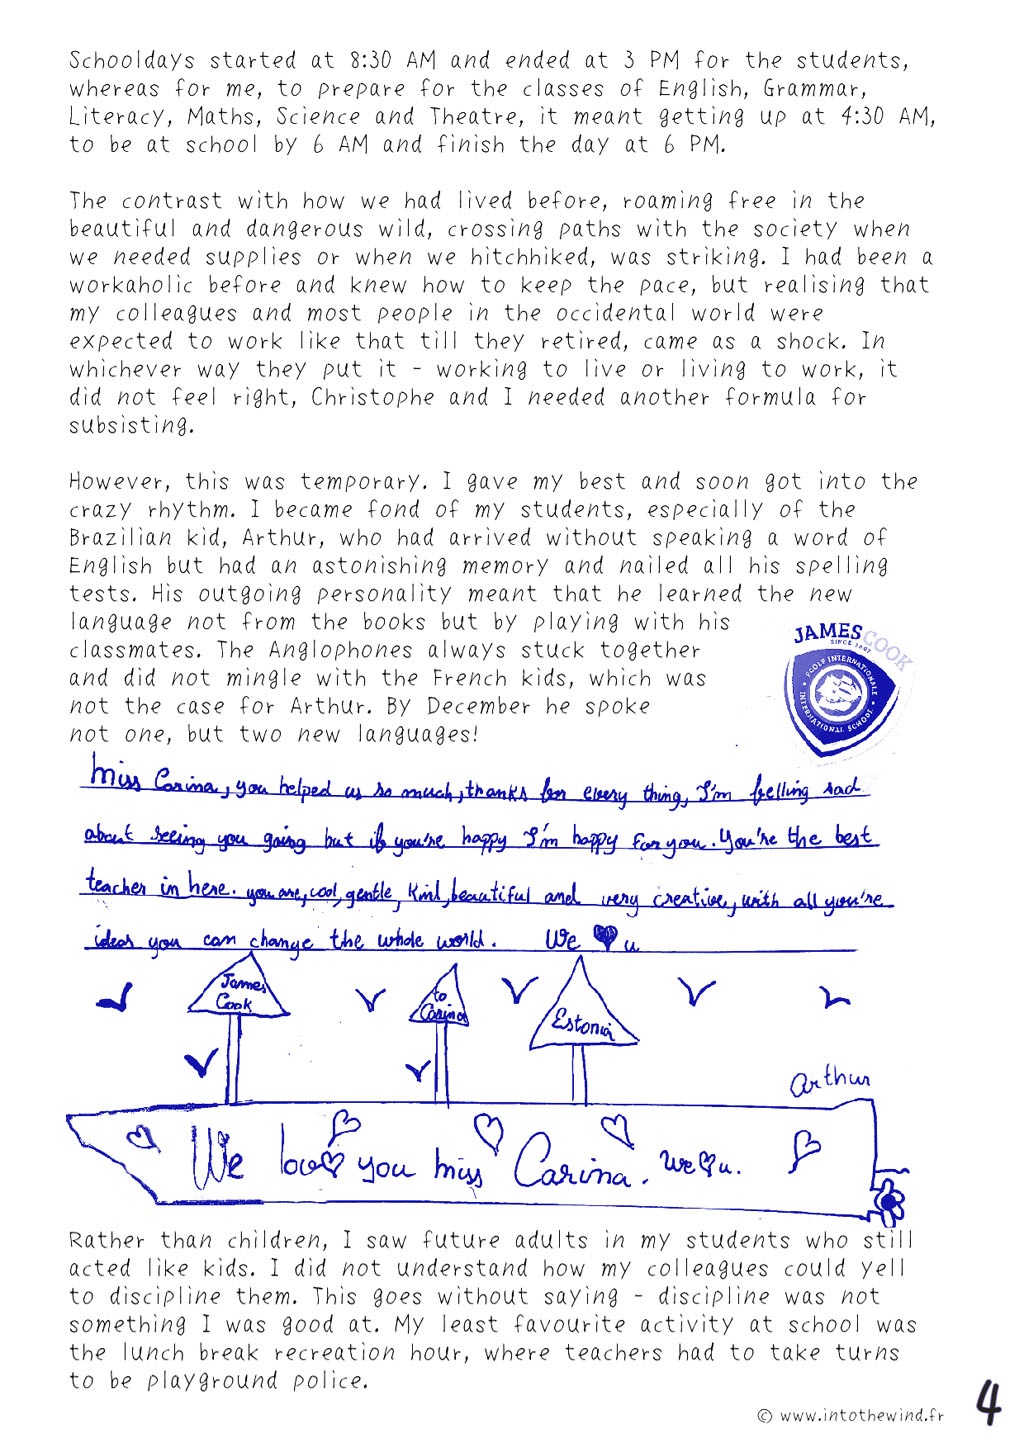 Schooldays started at 8:30 AM and ended at 3 PM for the students,
whereas for me, to prepare for the classes of English, Grammar,
Literacy, Maths, Science and Theatre, it meant getting up at 4:30 AM,
to be at school by 6 AM and finish the day at 6 PM.

The contrast with how we had lived before, roaming free in the
beautiful and dangerous wild, crossing paths with the society when
we needed supplies or when we hitchhiked, was striking. I had been a
workaholic before and knew how to keep the pace, but realising that
my colleagues and most people in the occidental world were
expected to work like that till they retired, came as a shock. In
whichever way they put it - working to live or living to work, it
did not feel right, Christophe and I needed another formula for
subsisting.

However, this was temporary. I gave my best and soon got into the
crazy rhythm. I became fond of my students, especially of the
Brazilian kid, Arthur, who had arrived without speaking a word of
English but had an astonishing memory and nailed all his spelling
tests. His outgoing personality meant that he learned the new
language not from the books but by playing with his
classmates. The Anglophones always stuck together
and did not mingle with the French kids, which was
not the case for Arthur. By December he spoke
not one, but two new languages!
JAMES COOK
SINCE 1997
ÉCOLE INTERNATIONALE
INTERNATIONAL SCHOOL
Miss Carina, you helped us so much, thanks for every thing, I'm felling sad
about seeing you going but if you're happy I'm happy for you. You're the best
teacher in here. you are, cool, gentle, kind, beautiful and very creative, with all you're
ideas you can change the whole world. We ♥ u
James
Cook
to
Carina
Estonia
Arthur
We love you miss Carina. We ♥ u.
Rather than children, I saw future adults in my students who still
acted like kids. I did not understand how my colleagues could yell
to discipline them. This goes without saying - discipline was not
something I was good at. My least favourite activity at school was
the lunch break recreation hour, where teachers had to take turns
to be playground police.
© www.intothewind.fr
4